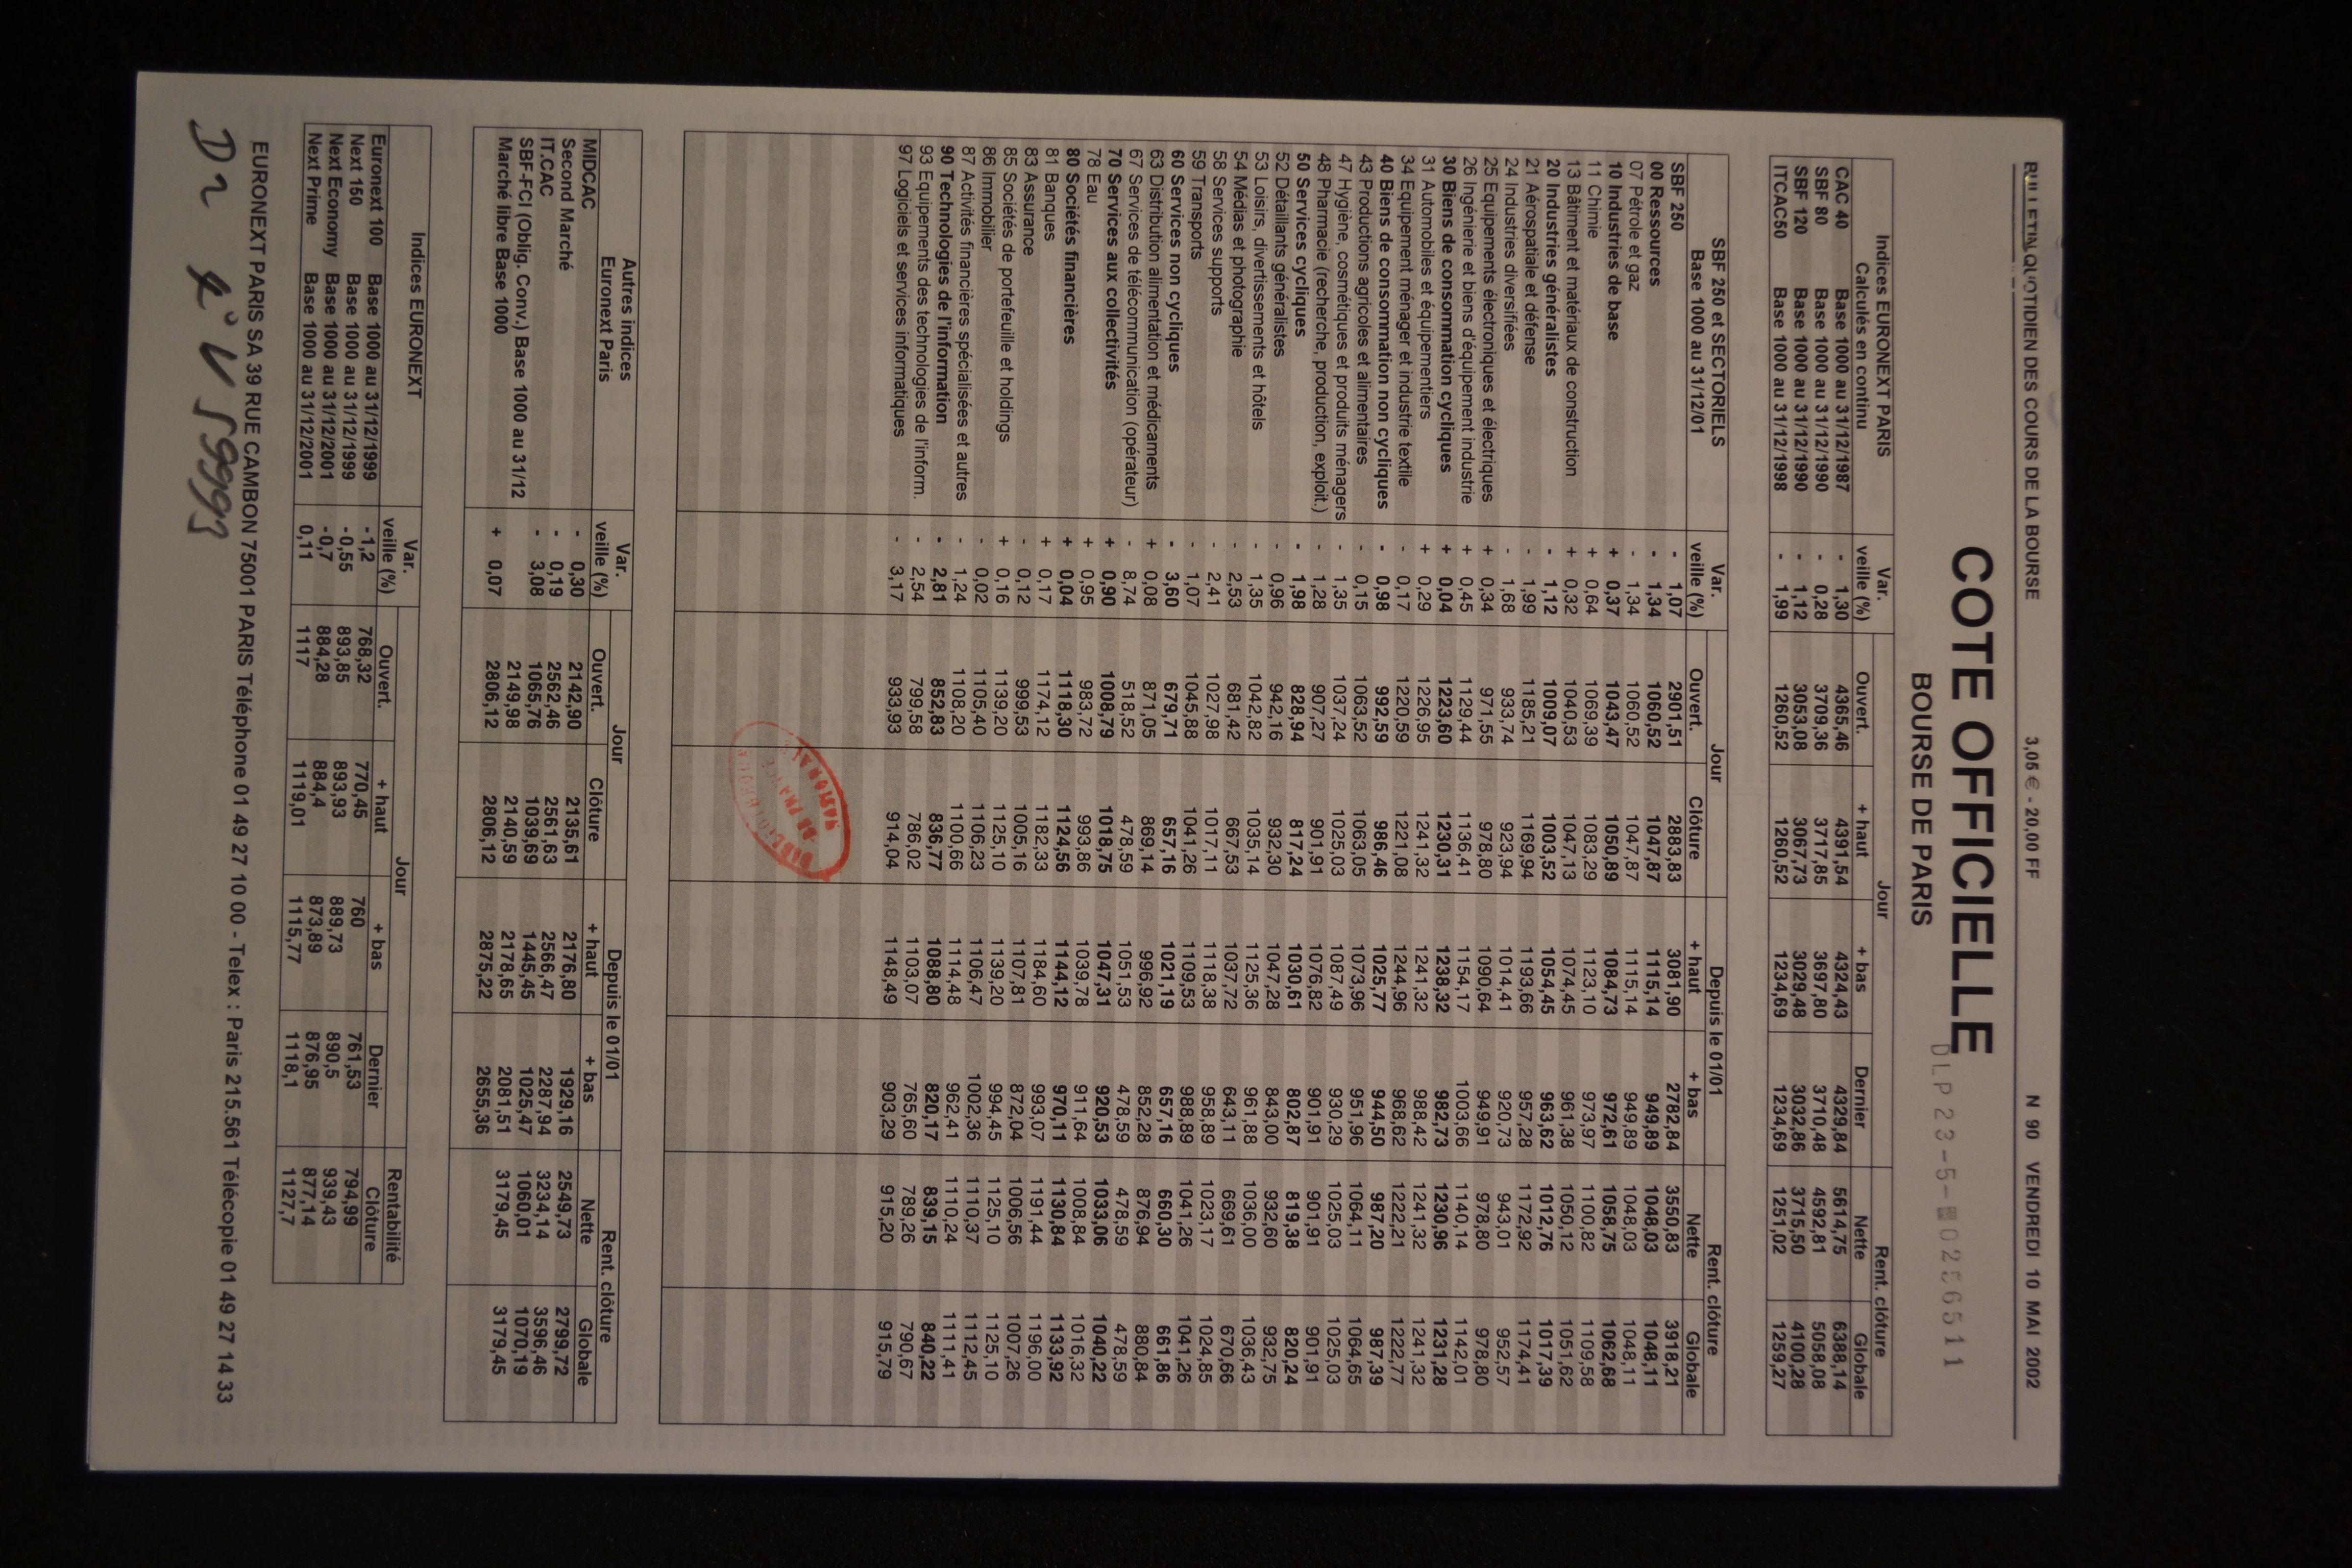 BULLETIN QUOTIDIEN DES COURS DE LA BOURSE 3,05 € - 20,00 FF N 90 VENDREDI 10 MAI 2002
COTE OFFICIELLE
BOURSE DE PARIS
DLP 23-5- 0256511
Indices EURONEXT PARIS Var. Jour Rent. clôture
Calculés en continu veille (%) Ouvert. + haut + bas Dernier Nette Globale
CAC 40 Base 1000 au 31/12/1987 - 1,30 4365,46 4391,54 4324,43 4329,84 5614,75 6388,14
SBF 80 Base 1000 au 31/12/1990 - 0,28 3709,36 3717,85 3697,80 3710,48 4592,81 5058,08
SBF 120 Base 1000 au 31/12/1990 - 1,12 3053,08 3067,73 3029,48 3032,86 3715,50 4100,28
ITCAC50 Base 1000 au 31/12/1998 - 1,99 1260,52 1260,52 1234,69 1234,69 1251,02 1259,27
SBF 250 et SECTORIELS Var. Jour Depuis le 01/01 Rent. clôture
Base 1000 au 31/12/01 veille (%) Ouvert. Clôture + haut + bas Nette Globale
SBF 250 - 1,07 2901,51 2883,83 3081,90 2782,84 3550,83 3918,21
00 Ressources - 1,34 1060,52 1047,87 1115,14 949,89 1048,03 1048,11
07 Pétrole et gaz - 1,34 1060,52 1047,87 1115,14 949,89 1048,03 1048,11
10 Industries de base + 0,37 1043,47 1050,89 1084,73 972,61 1058,75 1062,68
11 Chimie + 0,64 1069,39 1083,29 1123,10 973,97 1100,82 1109,58
13 Bâtiment et matériaux de construction + 0,32 1040,53 1047,13 1074,45 961,38 1050,12 1051,62
20 Industries généralistes - 1,12 1009,07 1003,52 1054,45 963,62 1012,76 1017,39
21 Aérospatiale et défense - 1,99 1185,21 1169,94 1193,66 957,28 1172,92 1174,41
24 Industries diversifiées - 1,68 933,74 923,94 1014,41 920,73 943,01 952,57
25 Equipements électroniques et électriques + 0,34 971,55 978,80 1090,64 949,91 978,80 978,80
26 Ingénierie et biens d'équipement industrie + 0,45 1129,44 1136,41 1154,17 1003,66 1140,14 1142,01
30 Biens de consommation cycliques + 0,04 1223,60 1230,31 1238,32 982,73 1230,96 1231,28
31 Automobiles et équipementiers + 0,29 1226,95 1241,32 1241,32 988,42 1241,32 1241,32
34 Equipement ménager et industrie textile - 0,17 1220,59 1221,08 1244,96 968,62 1222,21 1222,77
40 Biens de consommation non cycliques - 0,98 992,59 986,46 1025,77 944,50 987,20 987,39
43 Productions agricoles et alimentaires - 0,15 1063,52 1063,05 1073,96 951,96 1064,11 1064,65
47 Hygiène, cosmétiques et produits ménagers - 1,35 1037,24 1025,03 1087,49 930,29 1025,03 1025,03
48 Pharmacie (recherche, production, exploit.) - 1,28 907,27 901,91 1076,82 901,91 901,91 901,91
50 Services cycliques - 1,98 828,94 817,24 1030,61 802,87 819,38 820,24
52 Détaillants généralistes - 0,96 942,16 932,30 1047,28 843,00 932,60 932,75
53 Loisirs, divertissements et hôtels - 1,35 1042,82 1035,14 1125,36 961,88 1036,00 1036,43
54 Médias et photographie - 2,53 681,42 667,53 1037,72 643,11 669,61 670,66
58 Services supports - 2,41 1027,98 1017,11 1118,38 958,89 1023,17 1024,85
59 Transports - 1,07 1045,88 1041,26 1109,53 988,89 1041,26 1041,26
60 Services non cycliques - 3,60 679,71 657,16 1021,19 657,16 660,30 661,86
63 Distribution alimentation et médicaments + 0,08 871,05 869,14 996,92 852,28 876,94 880,84
67 Services de télécommunication (opérateur) - 8,74 518,52 478,59 1051,53 478,59 478,59 478,59
70 Services aux collectivités + 0,90 1008,79 1018,75 1047,31 920,53 1033,06 1040,22
78 Eau + 0,95 983,72 993,86 1039,78 911,64 1008,84 1016,32
80 Sociétés financières + 0,04 1118,30 1124,56 1144,12 970,11 1130,84 1133,92
81 Banques + 0,17 1174,12 1182,33 1184,60 993,07 1191,44 1196,00
83 Assurance - 0,12 999,53 1005,16 1107,81 872,04 1006,56 1007,26
85 Sociétés de portefeuille et holdings + 0,16 1139,20 1125,10 1139,20 994,45 1125,10 1125,10
86 Immobilier - 0,02 1105,40 1106,23 1106,47 1002,36 1110,37 1112,45
87 Activités financières spécialisées et autres - 1,24 1108,20 1100,66 1114,48 962,41 1110,24 1111,41
90 Technologies de l'information - 2,81 852,83 836,77 1088,80 820,17 839,15 840,22
93 Equipements des technologies de l'inform. - 2,54 799,58 786,02 1103,07 765,60 789,26 790,67
97 Logiciels et services informatiques - 3,17 933,93 914,04 1148,49 903,29 915,20 915,79
Autres indices Var. Jour Depuis le 01/01 Rent. clôture
Euronext Paris veille (%) Ouvert. Clôture + haut + bas Nette Globale
MIDCAC - 0,30 2142,90 2135,61 2176,80 1929,16 2549,73 2799,72
Second Marché - 0,19 2562,46 2561,63 2566,47 2287,94 3234,14 3596,46
IT.CAC - 3,08 1065,76 1039,69 1445,45 1025,47 1060,01 1070,19
SBF-FCI (Oblig. Conv.) Base 1000 au 31/12 2149,98 2140,59 2178,65 2081,51 3179,45 3179,45
Marché libre Base 1000 + 0,07 2806,12 2806,12 2875,22 2655,36
Indices EURONEXT Var. Jour Rentabilité
veille (%) Ouvert. + haut + bas Dernier Clôture
Euronext 100 Base 1000 au 31/12/1999 -1,2 768,32 770,45 760 761,53 794,99
Next 150 Base 1000 au 31/12/1999 -0,55 893,85 893,93 889,73 890,5 939,43
Next Economy Base 1000 au 31/12/2001 -0,7 884,28 884,4 873,89 876,95 877,14
Next Prime Base 1000 au 31/12/2001 0,11 1117 1119,01 1115,77 1118,1 1127,7
EURONEXT PARIS SA 39 RUE CAMBON 75001 PARIS Téléphone 01 49 27 10 00 - Telex : Paris 215.561 Télécopie 01 49 27 14 33